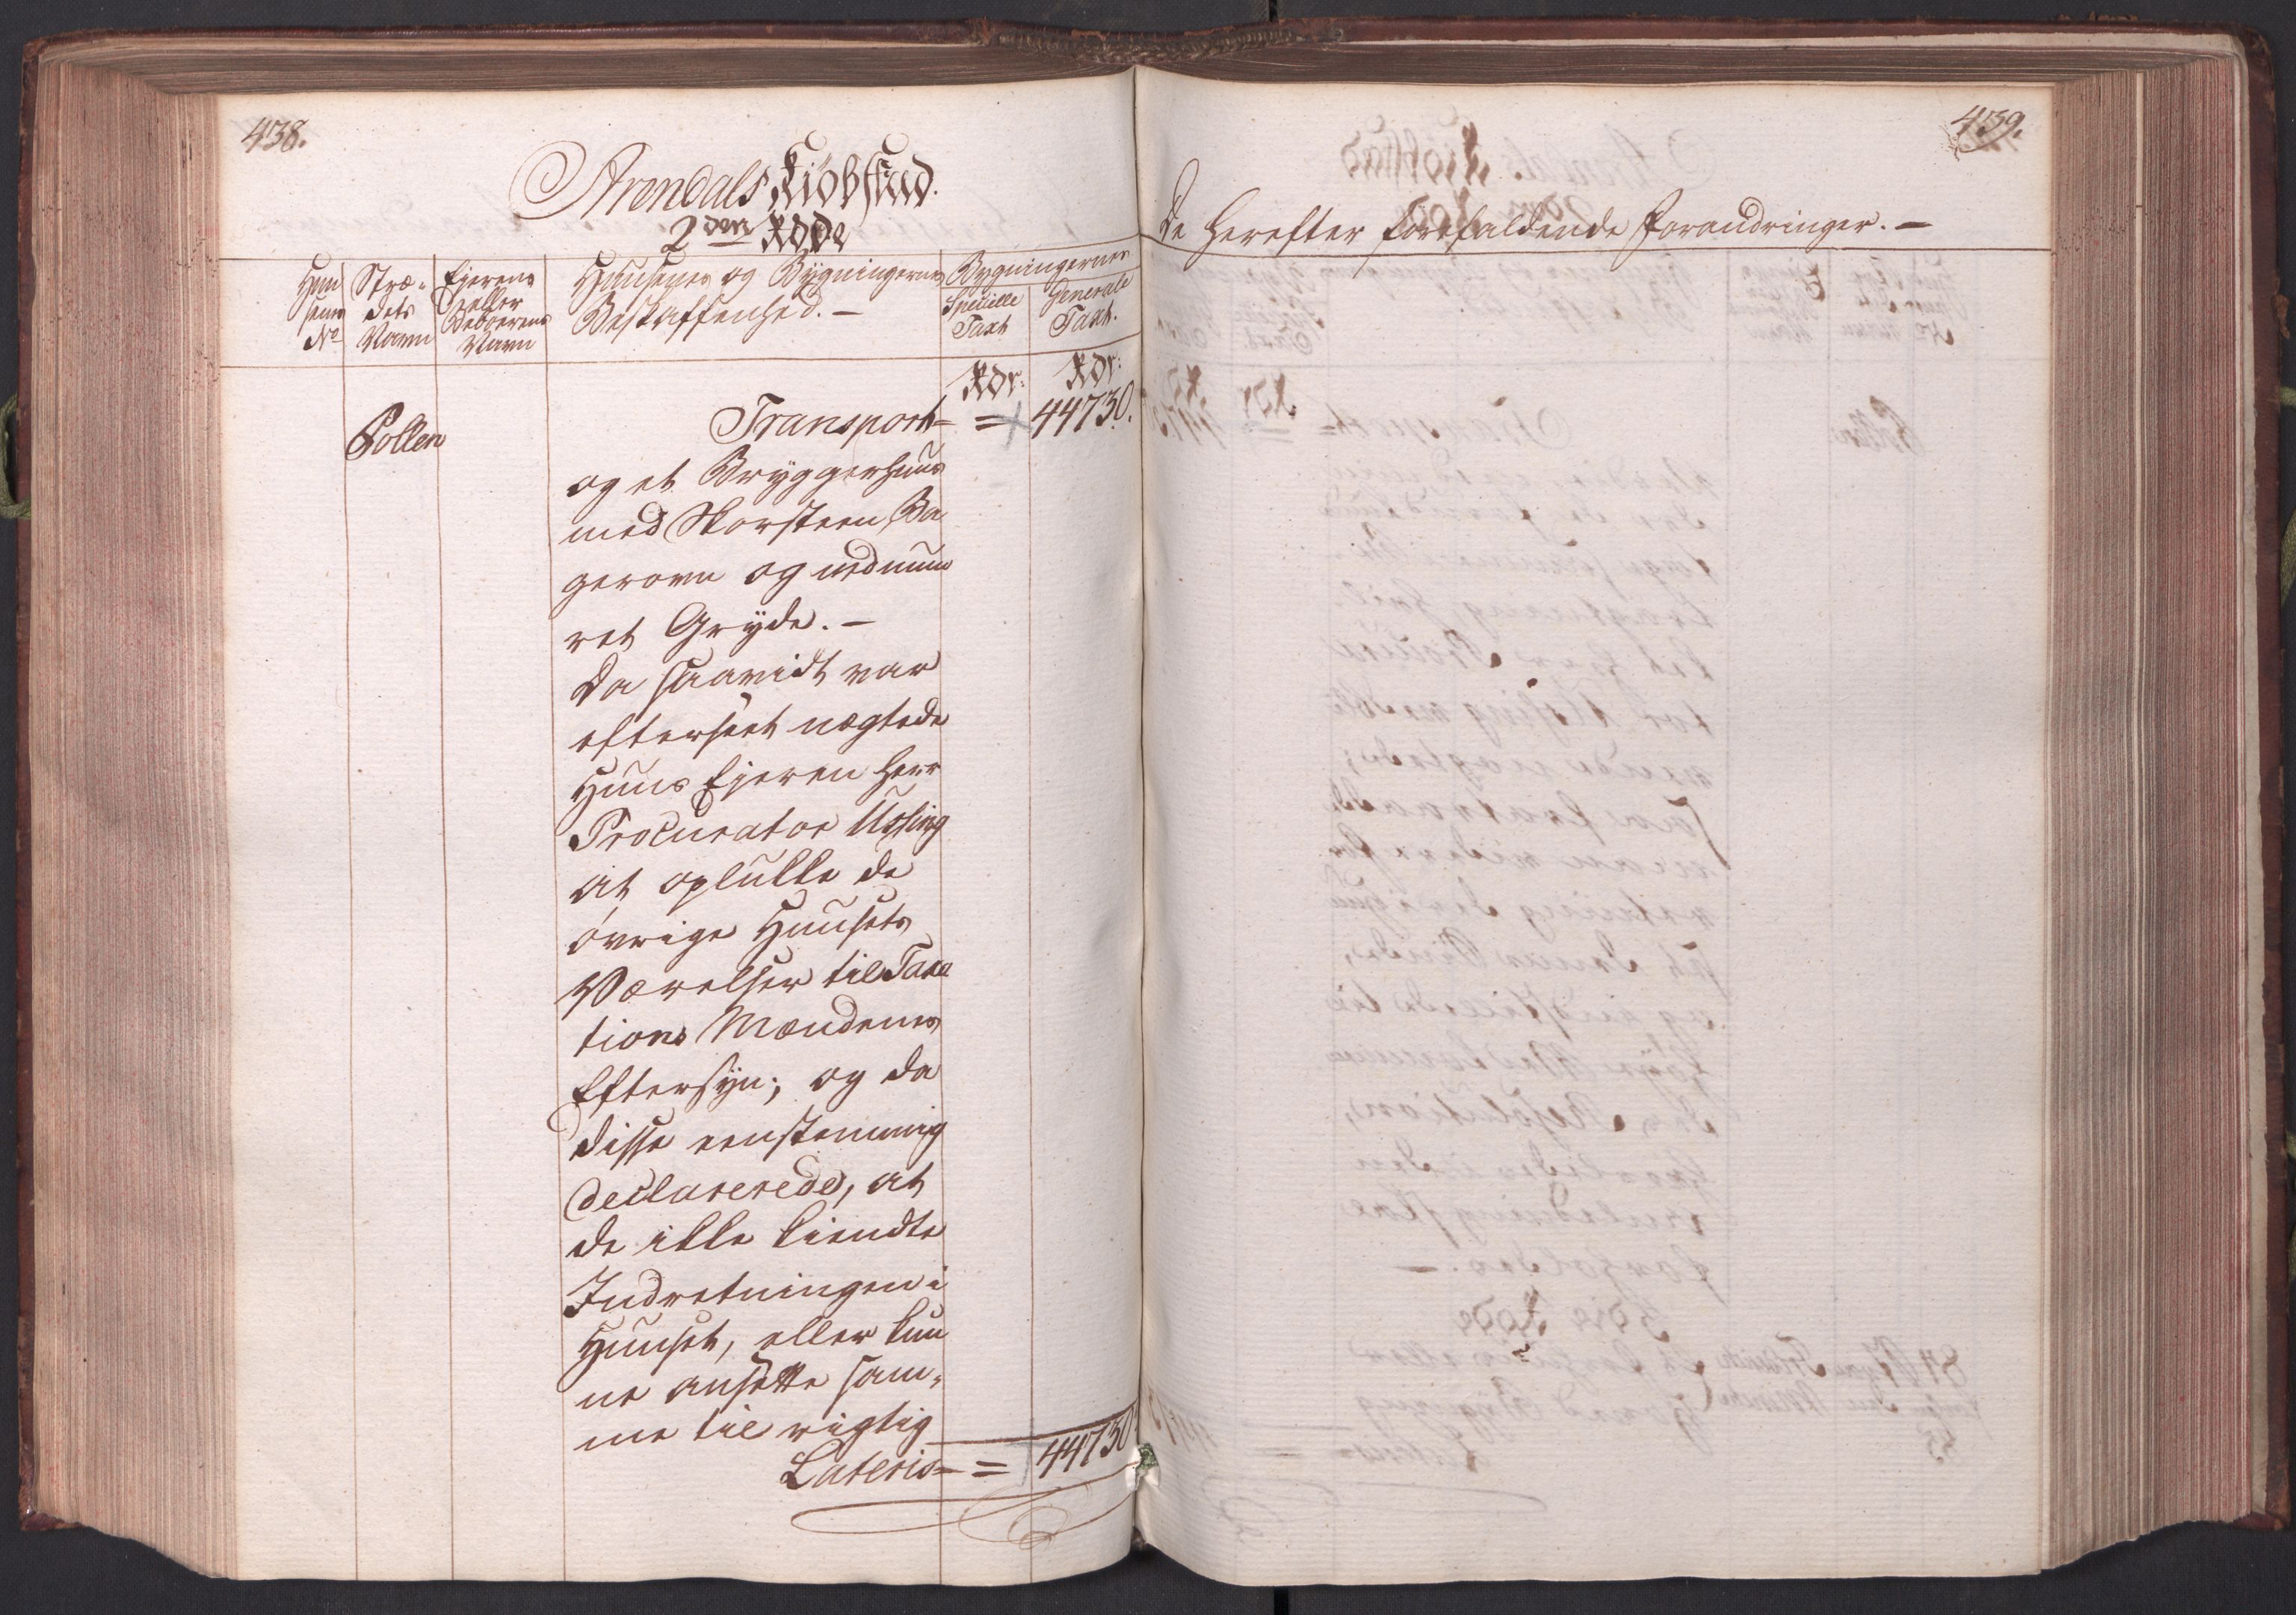 438.
Arendals Kiøbstad.
2den Rode
Huu
sens
No
Stræ-
dets
Navn
Ejerens
eller
Beboerens
Navn
Huusenes og Bygningernes
Beskaffenhed. -
Bygningernes
Specielle
Taxt
Generale
Taxt.
Rdr: Rdr:
Pollen
Transport = = 44730.
og et Bryggerhuus
med Skorsteen Ba
gerovn og indmuu
ret Gryde. -
Da saavidt var
efterseet nægtede
Huus Ejeren Herr
Procurator Ussing
at oplukke de
øvrige Huusets
Værelser til Taxa
tions Mændenes
Eftersyn; og da
disse eenstemmig
declarerede, at
de ikke kiendte
Indretningen i
Huuset, eller kun
ne ansætte sam-
me til rigtig
Lateris = = 44730.
439.
De herefter forefaldende Forandringer. -